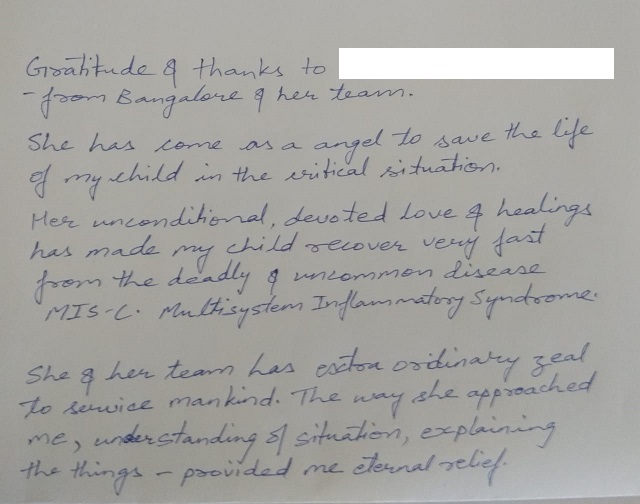 Gratitude & thanks to
- from Bangalore & her team.
She has come as a angel to save the life
of my child in the critical situation.
Her unconditional, devoted love & healings
has made my child recover very fast
from the deadly & uncommon disease
MIS-C. Multisystem Inflammatory Syndrome.
She & her team has extra ordinary zeal
to service mankind. The way she approached
me, understanding of situation, explaining
the things - provided me eternal relief.